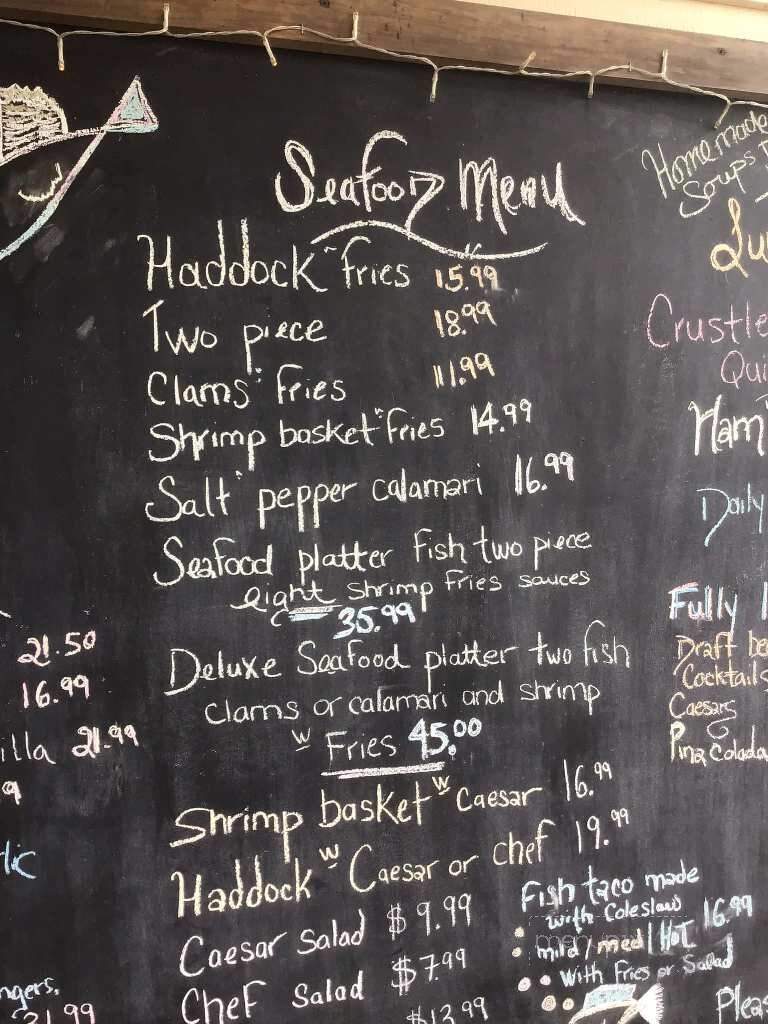 Seafood Menu
Haddock "fries 15.99
Two piece 18.99
Clams "fries 11.99
Shrimp basket "fries 14.99
Salt " pepper calamari 16.99
Seafood platter fish two piece
eight shrimp fries sauces
35.99
Deluxe Seafood platter two fish
clams or calamari and shrimp
w Fries 45.00
Shrimp basket w Caesar 16.99
Haddock w Caesar or chef 19.99
Caesar Salad $9.99
Chef Salad $7.99
$13.99
Fish taco made
with Coleslaw 16.99
mild/med/HOT
With Fries or Salad
21.50
16.99
illa 21.99
9
lic
ngers.
21.99
Homemade
Soups
Lu
Crustle
Qui
Ham
Daily
Fully
Draft be
Cocktails
Caesars
Pina Colada
Pleas